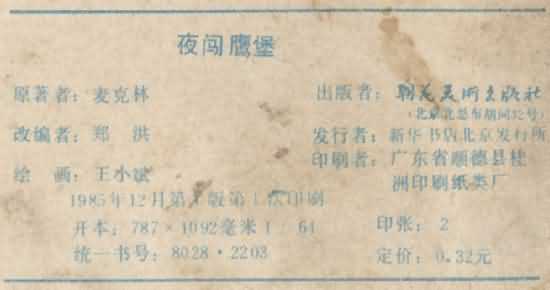 夜闯鹰堡
原著者：麦克林
改编者：郑 洪
绘 画：王小斌
1985年12月第1版第1次印刷
开本：787×1092毫米1／64
统一书号：8028·2203
出版者：朝花美术出版社
(北京北总布胡同32号)
发行者：新华书店北京发行所
印刷者：广东省顺德县桂
洲印刷纸类厂
印张：2
定价：0.32元